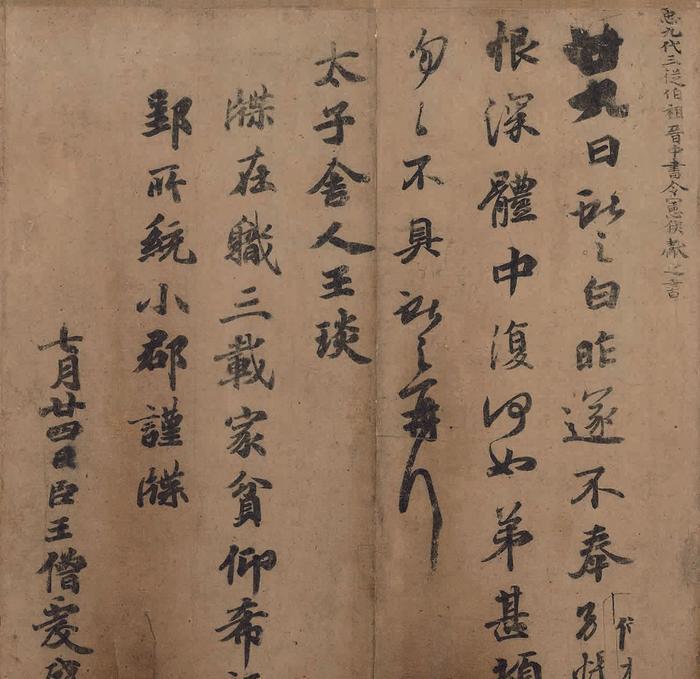 𢘑九代三從伯祖晉中書令憲侯獻之書
廿九日獻之白昨遂不奉別悵
恨深體中復何如弟甚頓
勿〻不具獻之再拜
太子舍人王琰
牒在職三載家貧仰希
郢所統小郡謹牒
七月廿四日臣王僧虔